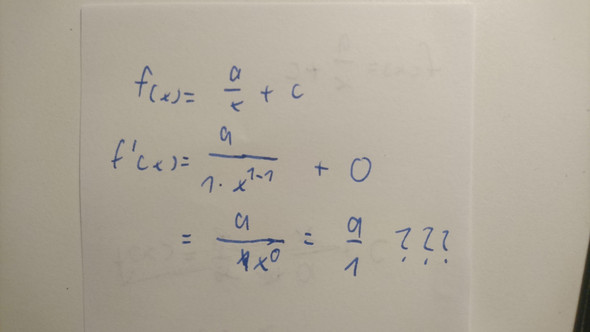 f(x) = a/x + c
f'(x) = a/(1·x^(1-1)) + 0
= a/(1x^0) = a/1 ???